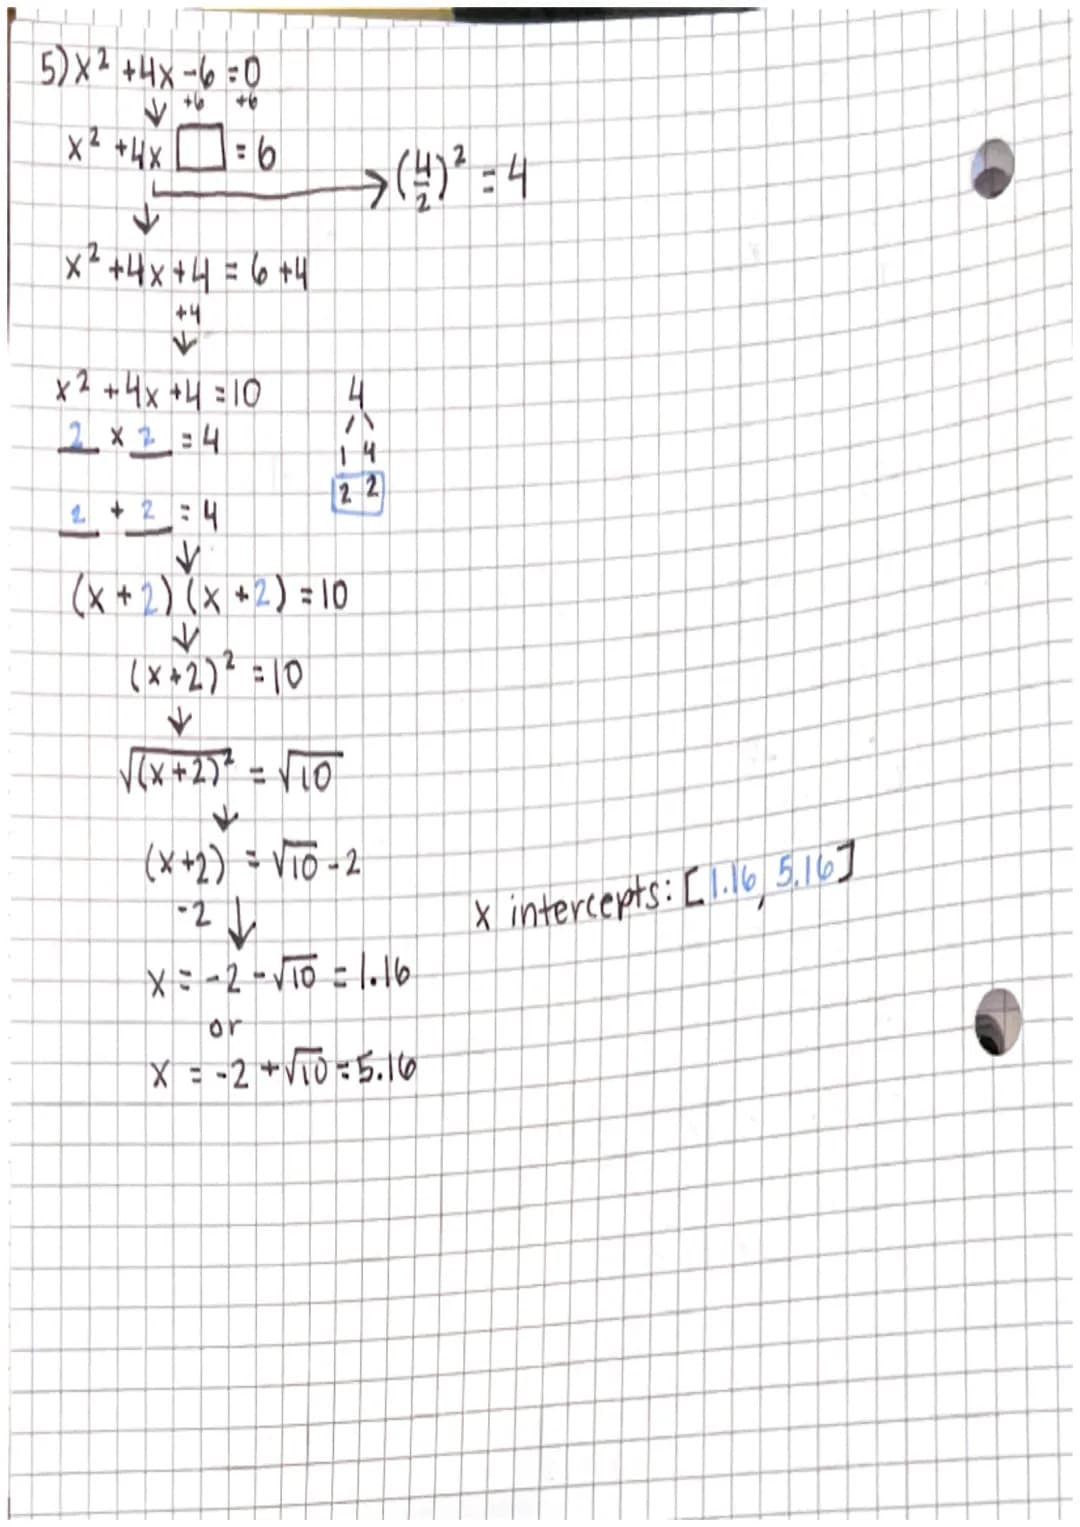 5) x² + 4x - 6 = 0
+6 +6
x² + 4x □ = 6
(4/2)² = 4
x² + 4x + 4 = 6 + 4
+4
x² + 4x + 4 = 10
4
2 x 2 = 4
1 4
2 2
2 + 2 = 4
(x + 2)(x + 2) = 10
(x + 2)² = 10
√(x + 2)² = √10
(x + 2) = √10 - 2
-2
x intercepts: [1.16, 5.16]
x = -2 - √10 = 1.16
or
x = -2 + √10 = 5.16